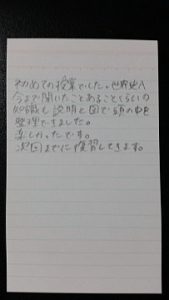 初めての授業でした。世界史A
今まで聞いたことあることくらいの
知識も説明と図で頭の中を
整理できました。
楽しかったです。
次回までに復習してきます。